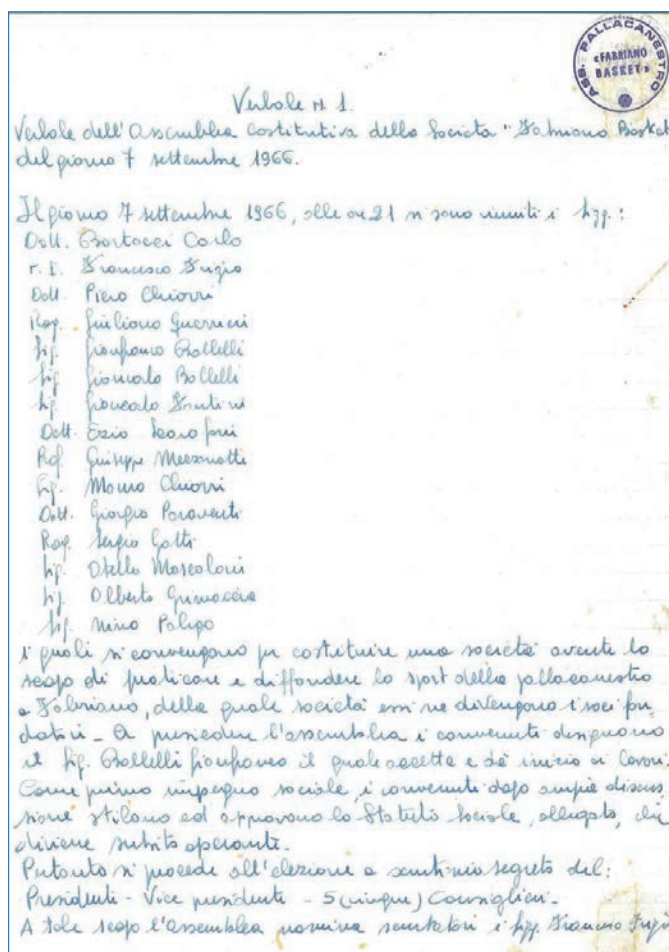 ASS. PALLACANESTRO
«FABRIANO
BASKET»
Verbale N 1.
Verbale dell'Assemblea Costitutiva della Società "Fabriano Basket
del giorno 7 settembre 1966.
Il giorno 7 settembre 1966, alle ore 21 si sono riuniti i Sigg.:
Dott. Bartocci Carlo
Francesco
Dott. Piero Chiorri
Rag. Giuliano Guerrieri
Sig. Gianfranco Ballelli
Sig. Giancarlo Ballelli
Sig. Giancarlo Santini
Dott. Ezio
Prof. Giuseppe Mezzanotte
Sig. Mauro Chiorri
Dott. Giorgio Paraventi
Rag. Sergio Gatti
Sig. Otello Mascolani
Sig. Alberto Grimaccia
Sig. Nino Paligo
i quali si convengono per costituire una società avente lo
scopo di praticare e diffondere lo sport della pallacanestro
a Fabriano, della quale società essi ne divengono i soci fon-
datori - A presiedere l'assemblea i convenuti designano
il Sig. Ballelli Gianfranco il quale accetta e dà inizio ai lavori.
Come primo impegno sociale, i convenuti dopo ampia discus
sione stilano ed approvano lo Statuto Sociale, allegato, che
diviene subito operante.
Pertanto si procede all'elezione a scrutinio segreto del:
Presidente - Vice presidente - 5 (cinque) Consiglieri.
A tale scopo l'assemblea nomina scrutatori i Sigg.